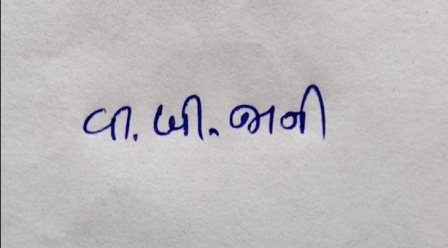 વી. બી. જાની